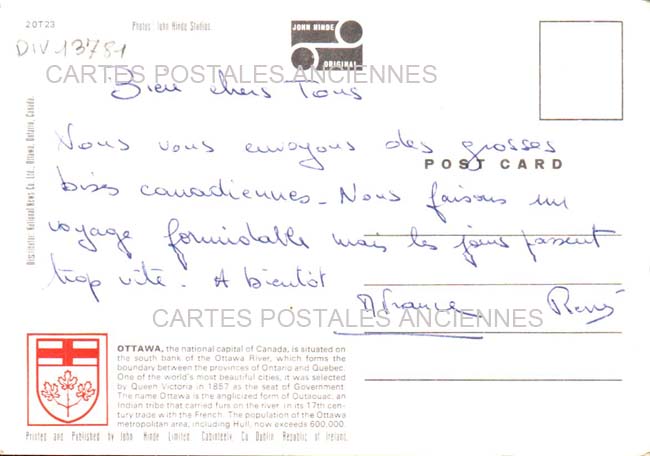 20T23
Photos: John Hinde Studios.
JOHN HINDE
ORIGINAL
DIV 13751
CARTES POSTALES ANCIENNES
Bien chers Tous
Nous vous envoyons des grosses
POST CARD
bises canadiennes_ Nous faisons un
voyage formidable mais les jours passent
trop vite. A bientôt
France René
CARTES POSTALES ANCIENNES
Distributor: National News Co. Ltd., Ottawa, Ontario, Canada.
OTTAWA, the national capital of Canada, is situated on
the south bank of the Ottawa River, which forms the
boundary between the provinces of Ontario and Quebec.
One of the world's most beautiful cities, it was selected
by Queen Victoria in 1857 as the seat of Government
The name Ottawa is the anglicized form of Outaouac, an
Indian tribe that carried furs on the river, in its 17th cen-
tury trade with the French. The population of the Ottawa
metropolitan area, including Hull, now exceeds 600,000.
Printed and Published by John Hinde Limited, Cabinteely, Co Dublin Republic of Ireland.